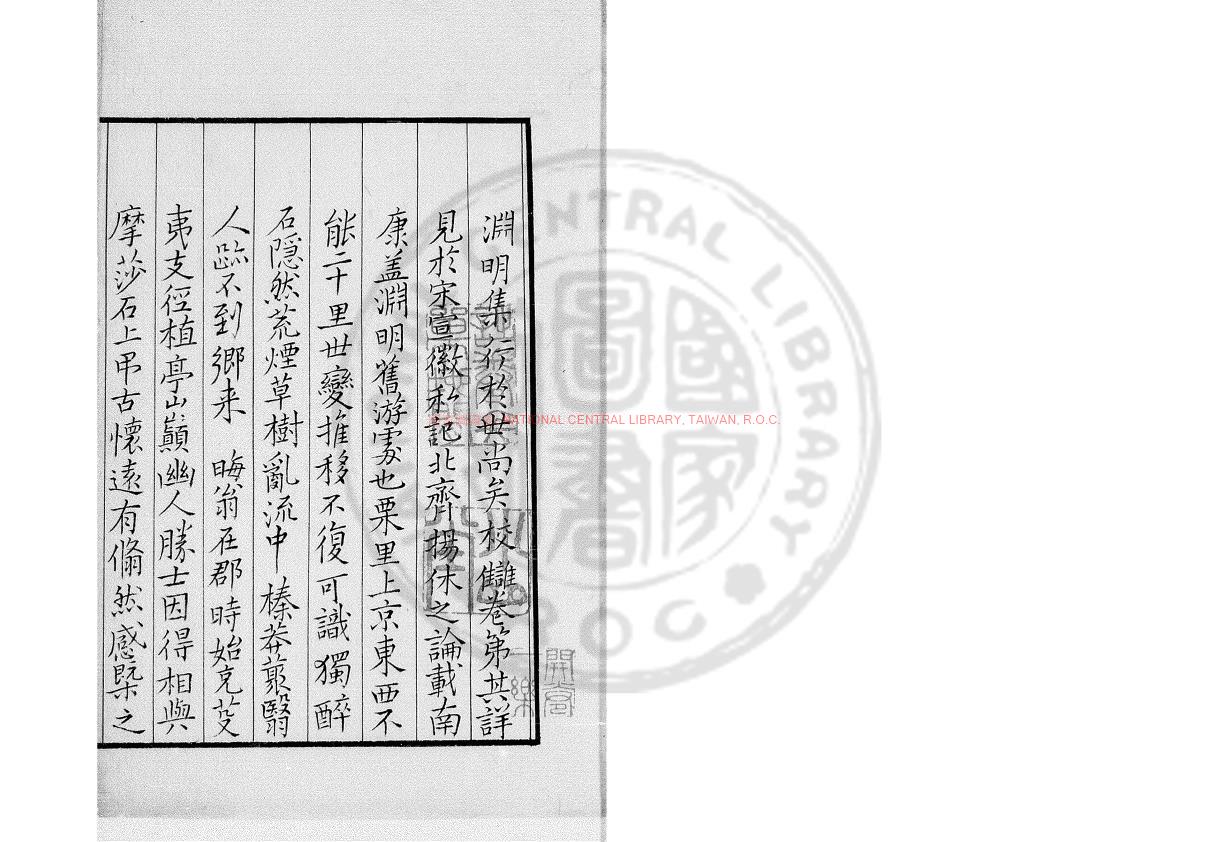 淵明集行於世尚矣校讎卷第其詳
見於宋宣徽私記北齊揚休之論載南
康盖淵明舊游處也栗里上京東西不
能二十里世變推移不復可識獨醉
石隠然荒煙草樹亂流中榛莽蒙翳
人跡不到鄉来　晦翁在郡時始克芟
夷支徑植亭山巔幽人勝士因得相與
摩莎石上弔古懷遠有翛然感槩之
NATIONAL CENTRAL LIBRARY, TAIWAN, R.O.C.